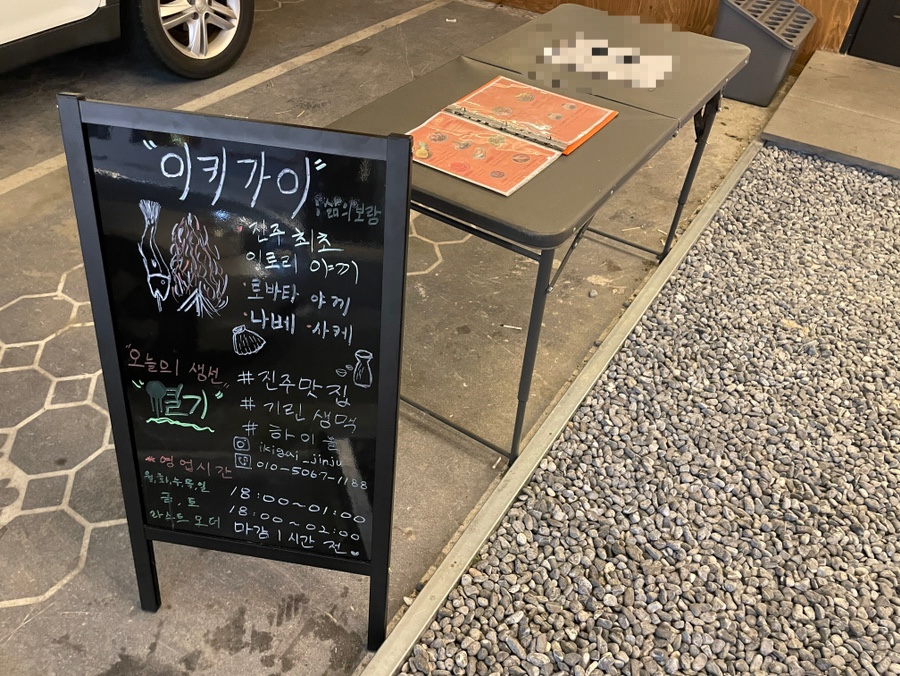 "이키가이"
삶의보람
·진주 최초
이로리 야끼
·로바타 야끼
·나베 ·사케
"오늘의 생선"
#진주맛집
#기린생맥
#하이볼
ikigai_jinju
010-5067-1188
#영업시간
월,화,수,목,일 18:00~01:00
금,토 18:00~02:00
라스트오더 마감 1시간 전